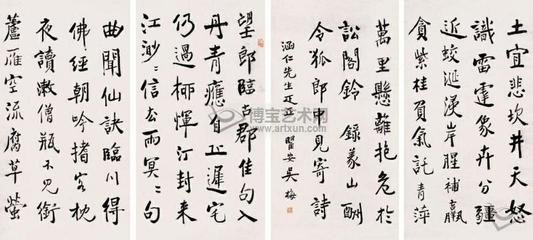 望郎臨古郡佳句入
丹青應自丘遲宅
仍過柳惲汀封來
江渺〻信去雨冥〻句
曲聞仙訣臨川得
佛經朝吟搘客枕
夜讀漱僧瓶不見銜
蘆雁空流腐草螢
土宜悲坎井天怒
識雷霆象卉分疆
近蛟涎浸岸腥補羸
貪紫桂負氣託青萍
萬里懸離抱危於
訟閤鈴 錄義山酬
令狐郎中見寄詩
涵仁先生正 瞿安吳梅
博宝艺术网
www.artxun.com